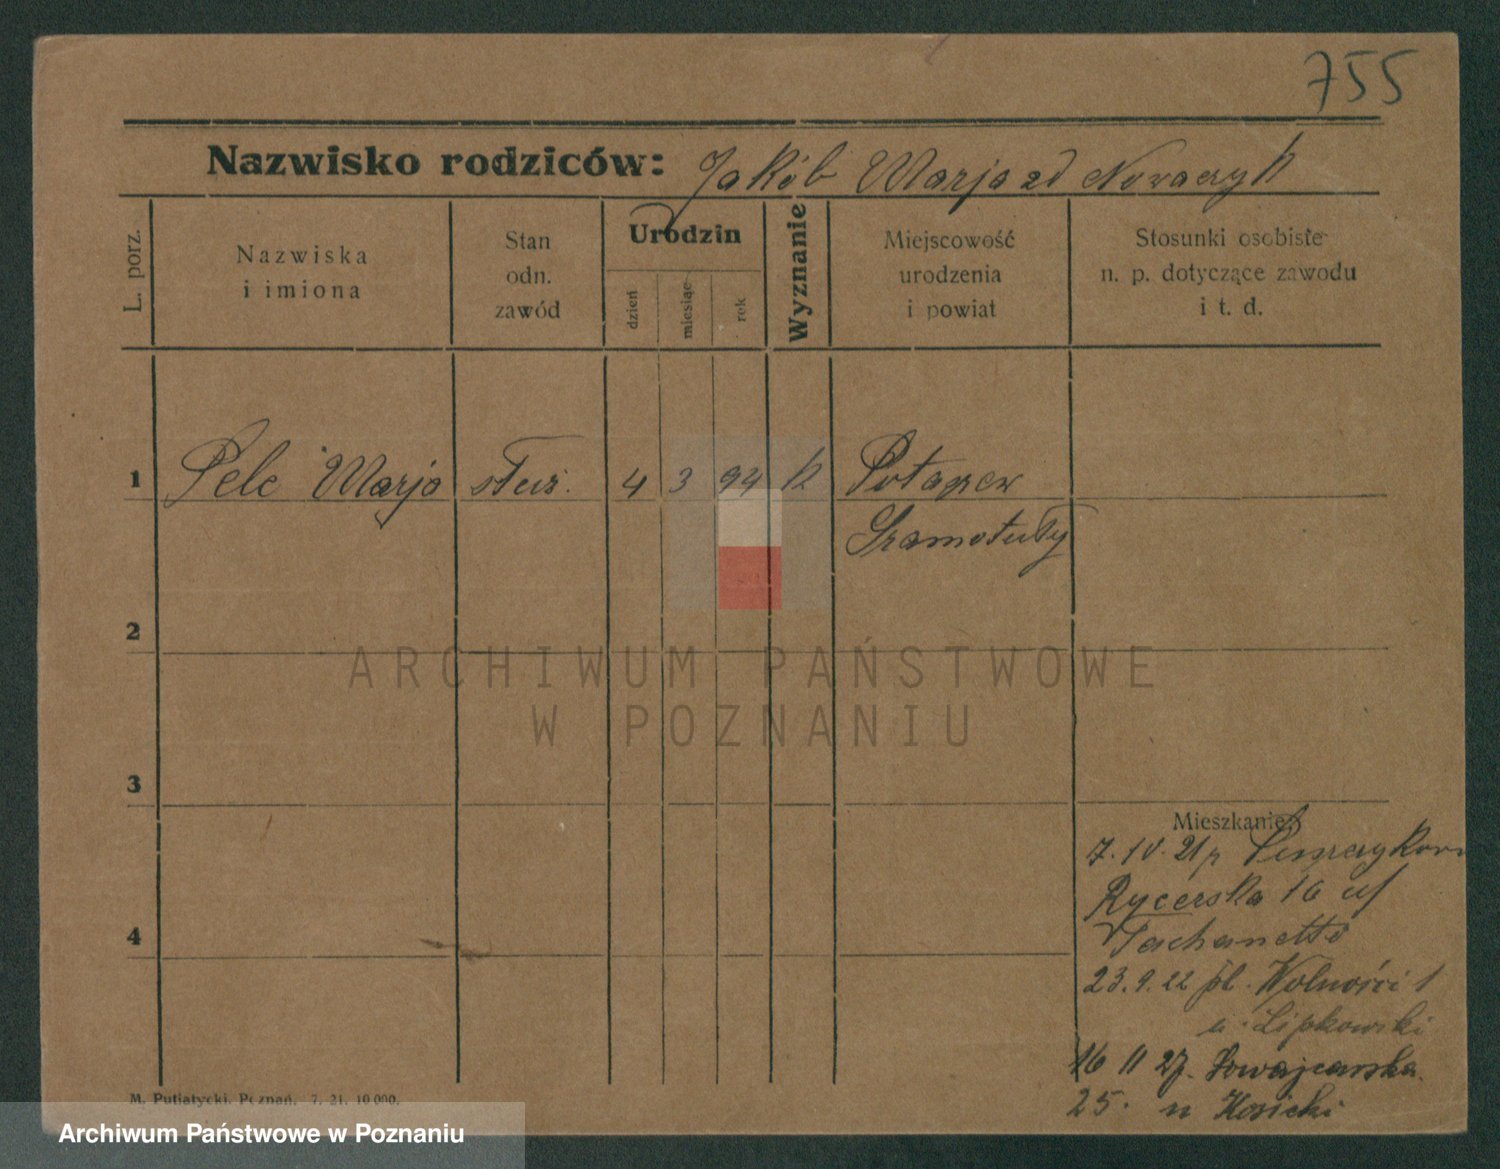 755
Nazwisko rodziców: Jakób Marja zd Nowaczyk
L. porz.
Nazwiska
i imiona
Stan
odn.
zawód
Urodzin
dzień
miesiąc
rok
Wyznanie
Miejscowość
urodzenia
i powiat
Stosunki osobiste
n. p. dotyczące zawodu
i t. d.
1 Pelc Marja służ. 4 3 94 k
Szamotuły
2
ARCHIWUM PAŃSTWOWE
W POZNANIU
3
Mieszkanie:
7. IV. 21
Rycerska 16
4
23. 9. 22 pl. Wolności 1
u. Lipkowski
16 11 27. Szwajcarska
25. u Kosicki
M. Putiatycki, Poznań. 7. 21. 10 000.
Archiwum Państwowe w Poznaniu